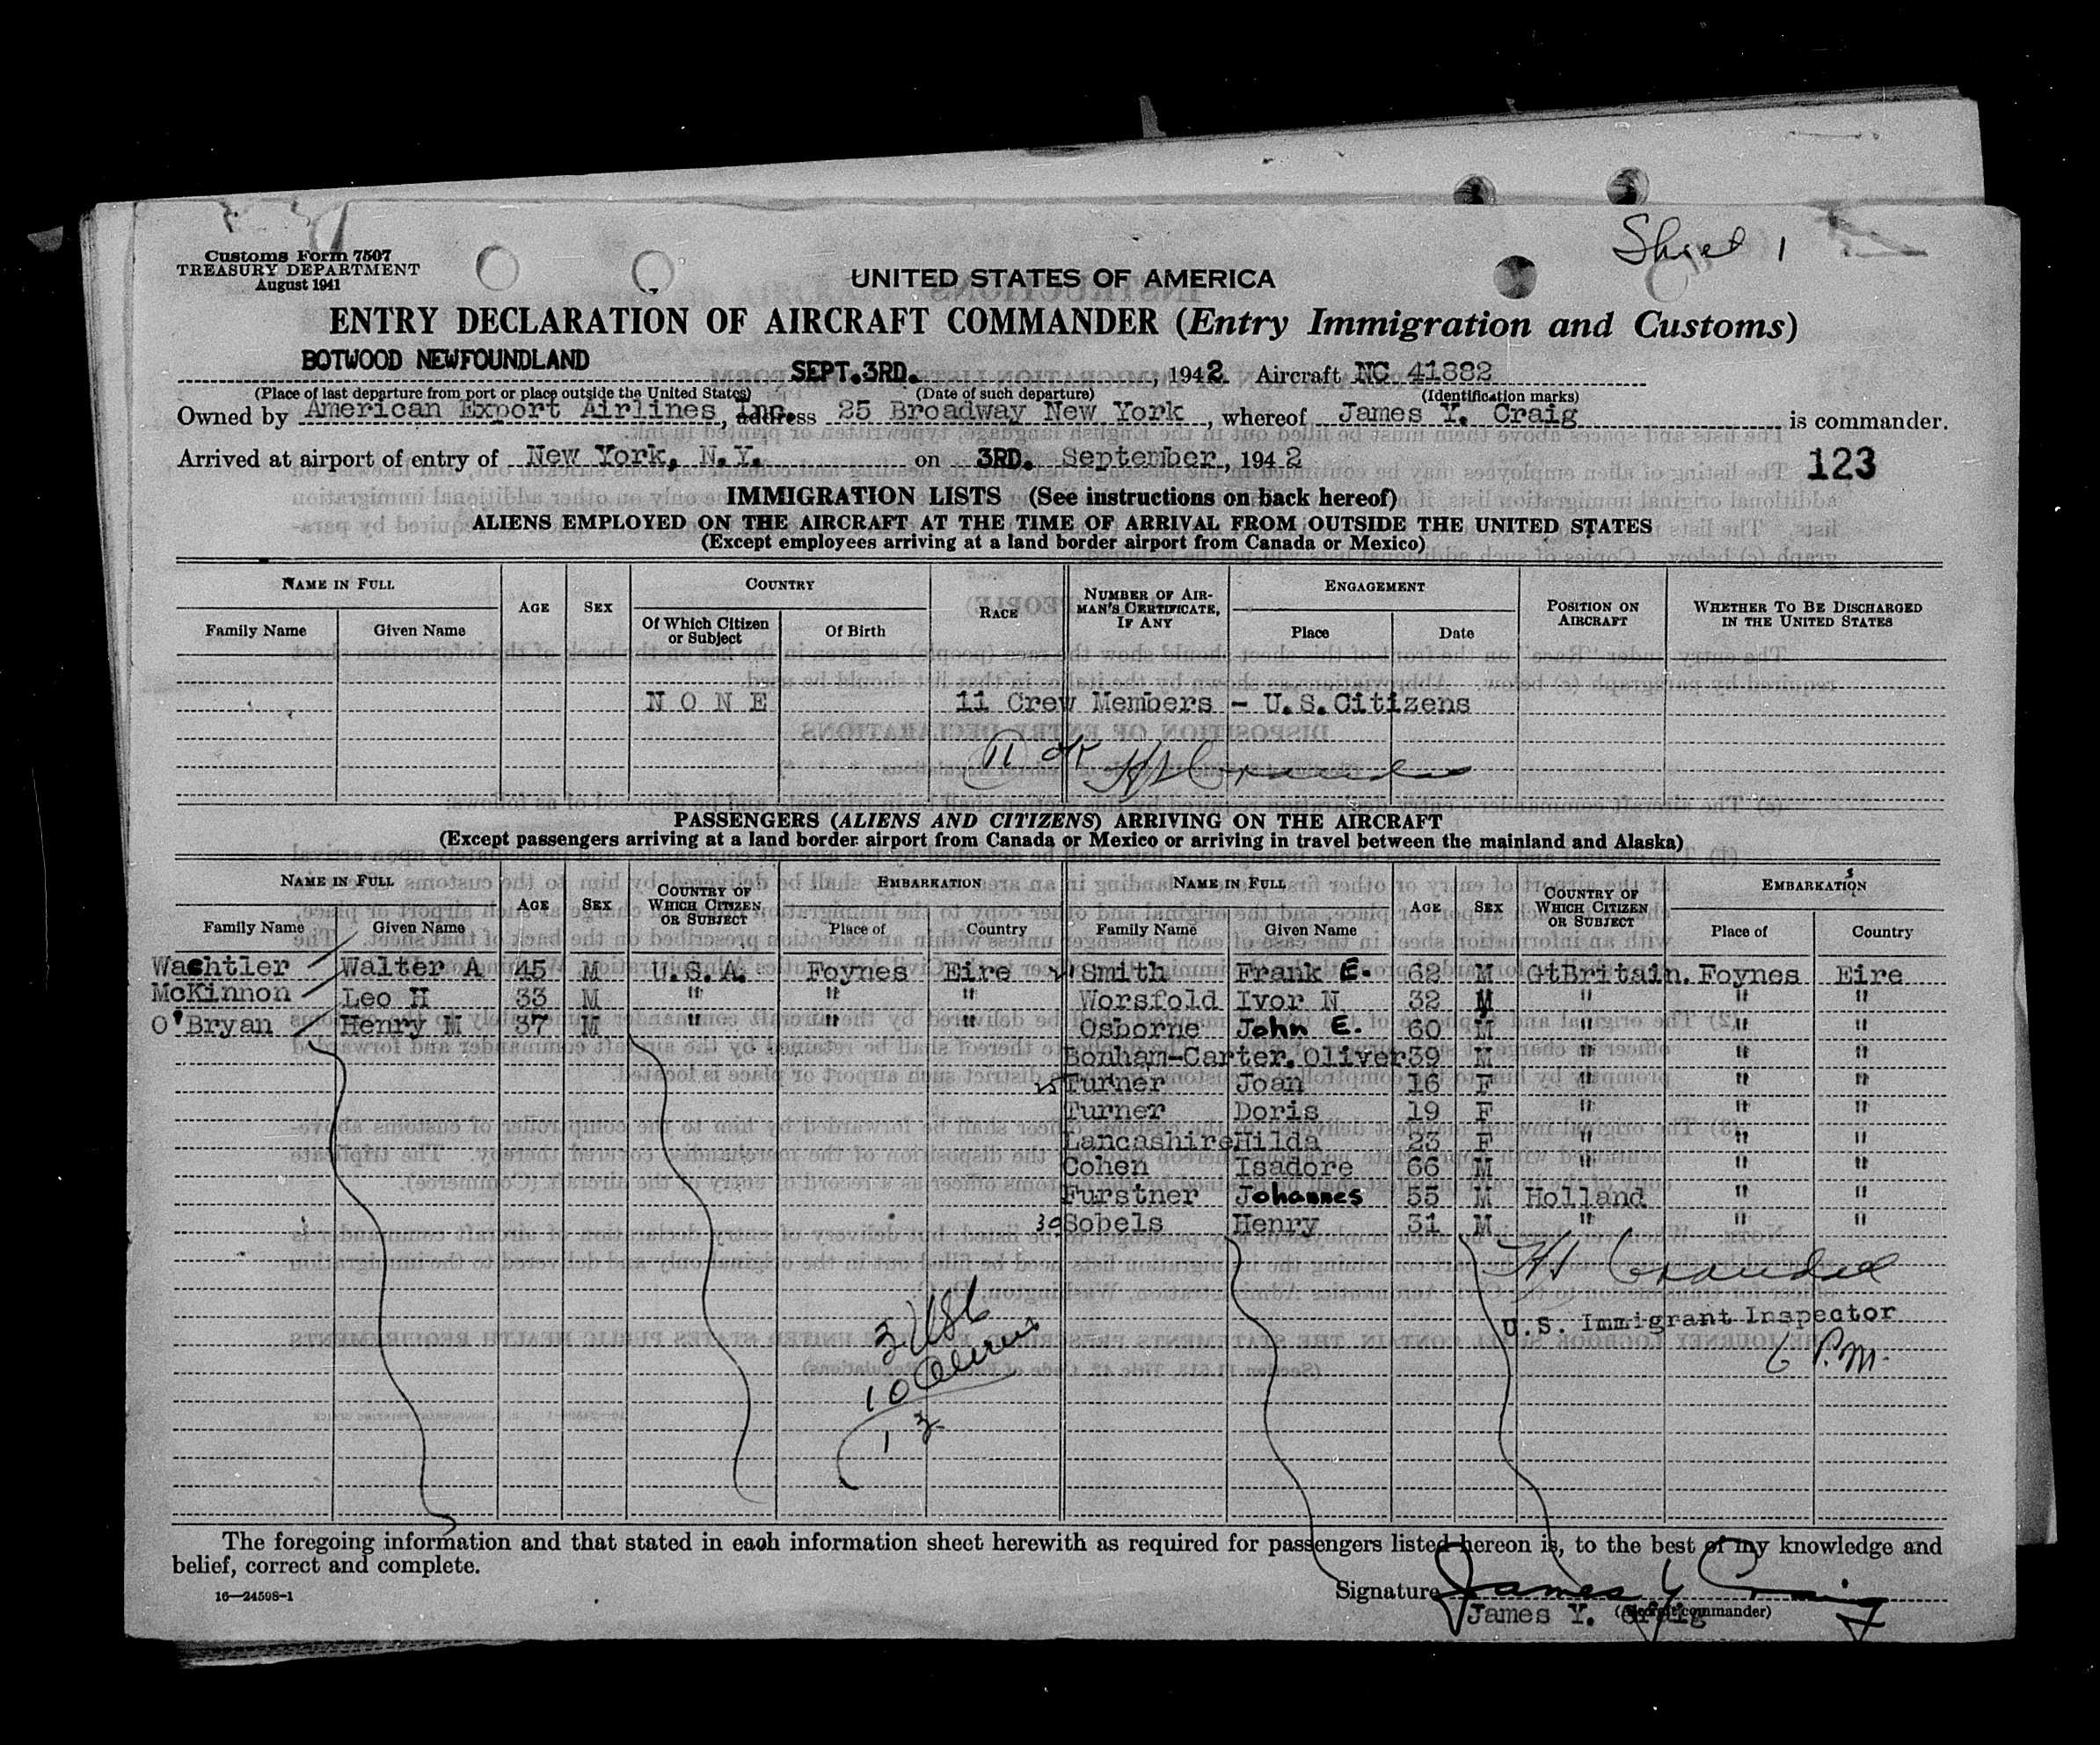 Sheet 1
Customs Form 7507
TREASURY DEPARTMENT
August 1941
UNITED STATES OF AMERICA
ENTRY DECLARATION OF AIRCRAFT COMMANDER (Entry Immigration and Customs)
BOTWOOD NEWFOUNDLAND SEPT.3RD. , 1942 Aircraft NC 41882
(Place of last departure from port or place outside the United States) (Date of such departure) (Identification marks)
Owned by American Export Airlines Inc. , address 25 Broadway New York , whereof James Y. Craig is commander.
Arrived at airport of entry of New York, N.Y. on 3RD. September , 1942
123
IMMIGRATION LISTS (See instructions on back hereof)
ALIENS EMPLOYED ON THE AIRCRAFT AT THE TIME OF ARRIVAL FROM OUTSIDE THE UNITED STATES
(Except employees arriving at a land border airport from Canada or Mexico)
NAME IN FULL AGE SEX COUNTRY RACE NUMBER OF AIRMAN'S CERTIFICATE, IF ANY ENGAGEMENT POSITION ON AIRCRAFT WHETHER TO BE DISCHARGED IN THE UNITED STATES
Family Name Given Name Of Which Citizen or Subject Of Birth Place Date
N O N E 11 Crew Members - U.S.Citizens
11
PASSENGERS (ALIENS AND CITIZENS) ARRIVING ON THE AIRCRAFT
(Except passengers arriving at a land border airport from Canada or Mexico or arriving in travel between the mainland and Alaska)
NAME IN FULL AGE SEX COUNTRY OF WHICH CITIZEN OR SUBJECT EMBARKATION NAME IN FULL AGE SEX COUNTRY OF WHICH CITIZEN OR SUBJECT EMBARKATION
Family Name Given Name Place of Country Family Name Given Name Place of Country
Wachtler Walter A 45 M U.S.A. Foynes Eire Smith Frank E. 62 M GtBritain. Foynes Eire
McKinnon Leo H 33 M " " " Worsfold Ivor N 32 M " " "
O'Bryan Henry M 37 M " " " Osborne John E. 60 M " " "
Bonham-Carter.Oliver 39 M " " "
25 Turner Joan 16 F " " "
Turner Doris 19 F " " "
Lancashire Hilda 23 F " " "
Cohen Isadore 66 M " " "
Furstner Johannes 55 M Holland " "
30 Sobels Henry 31 M " " "
3 USC
10 Aliens
13
U.S. Immigrant Inspector
6 P.M.
The foregoing information and that stated in each information sheet herewith as required for passengers listed hereon is, to the best of my knowledge and
belief, correct and complete.
16—24598-1
Signature James Y Craig
James Y. Craig (Aircraft commander)